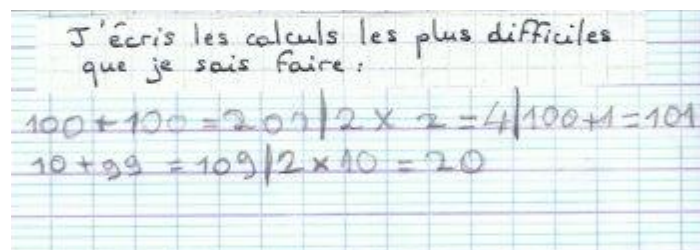 J'écris les calculs les plus difficiles
que je sais faire :
100 + 100 = 202 | 2 × 2 = 4 | 100 + 1 = 101
10 + 99 = 109 | 2 × 10 = 20